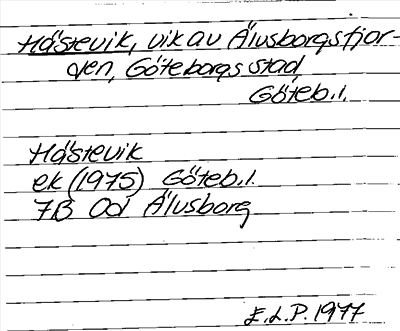 Hästevik, vik av Älvsborgsfjor-
den, Göteborgs stad,
Göteb.l.
Hästevik
ek (1975) Göteb.l.
7B 0d Älvsborg
E.L.P. 1977